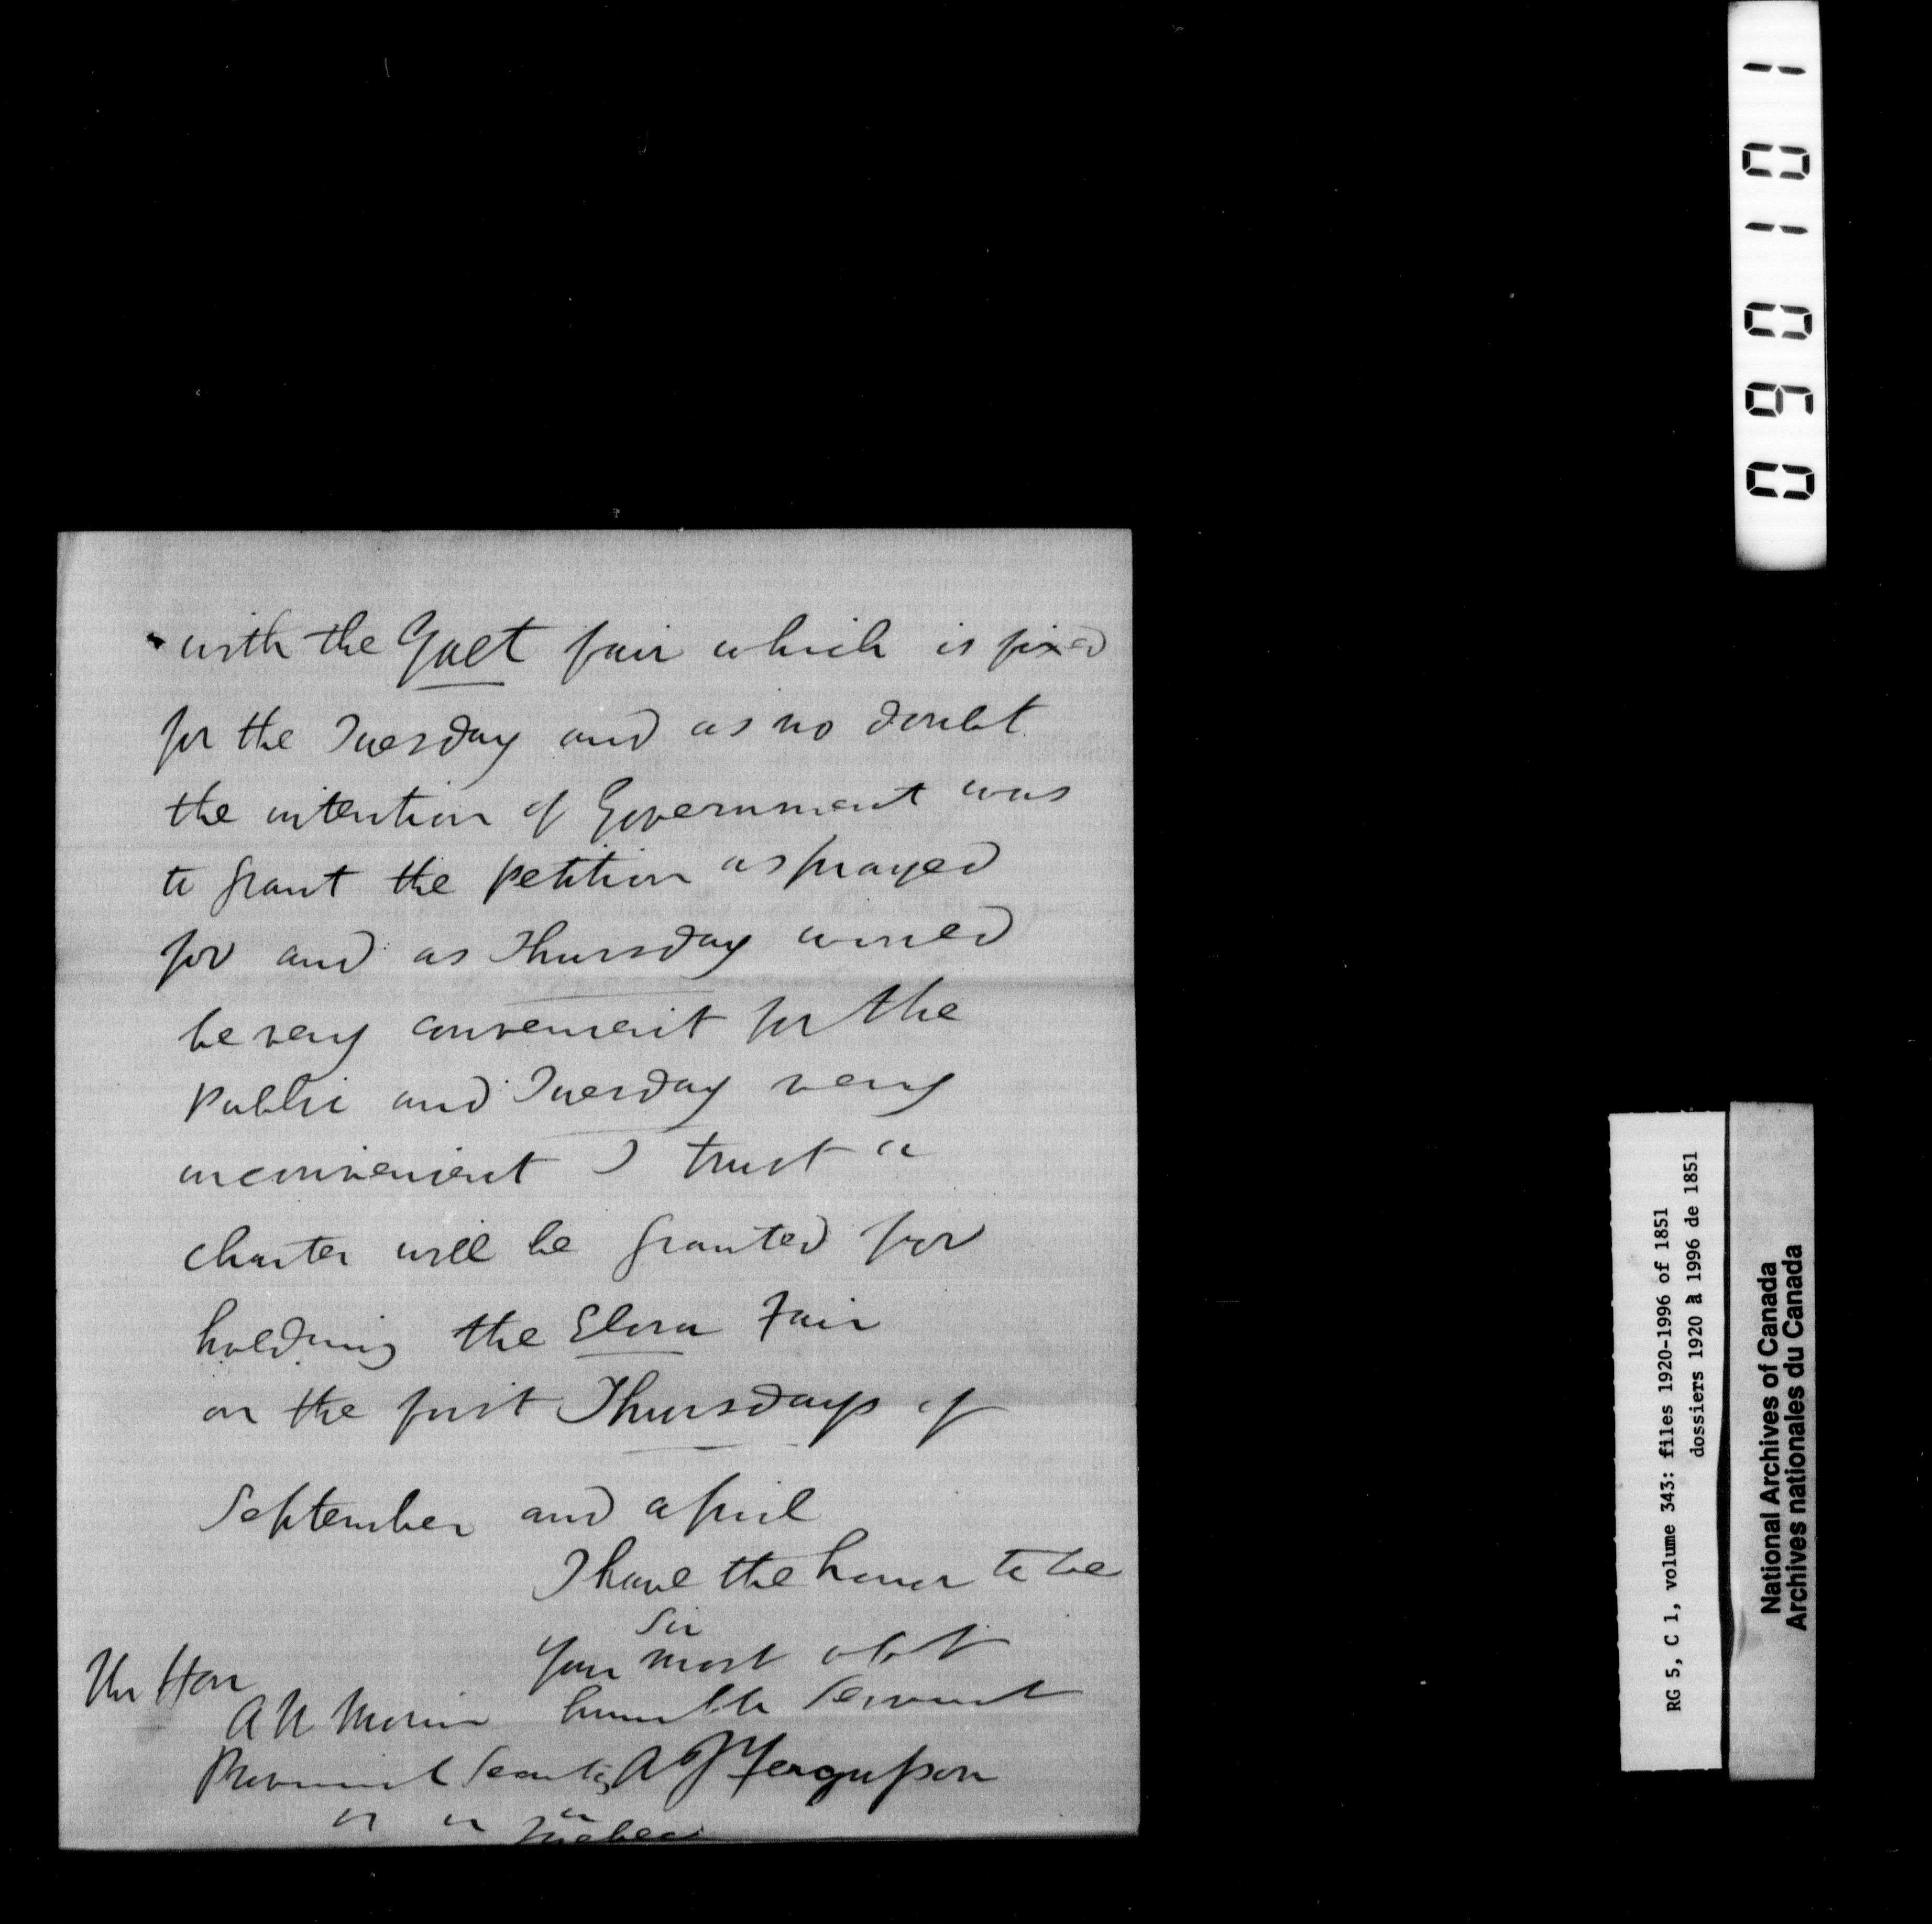 with the Galt fair which is fixed
for the Tuesday and as no doubt
the intention of Government was
to grant the petition as prayed
for and as Thursday would
be very convenient for the
Public and Tuesday very
inconvenient I trust a
charter will be granted for
holding the Elora Fair
on the first Thursdays of
September and april
I have the honor to be
Sir
Your most obt
humble Servant
A J Fergusson
The Hon
A N Morin
Provincial Secretary
Quebec
1 0 1 0 9 0
RG 5, C 1, volume 343: files 1920-1996 of 1851
dossiers 1920 à 1996 de 1851
National Archives of Canada
Archives nationales du Canada